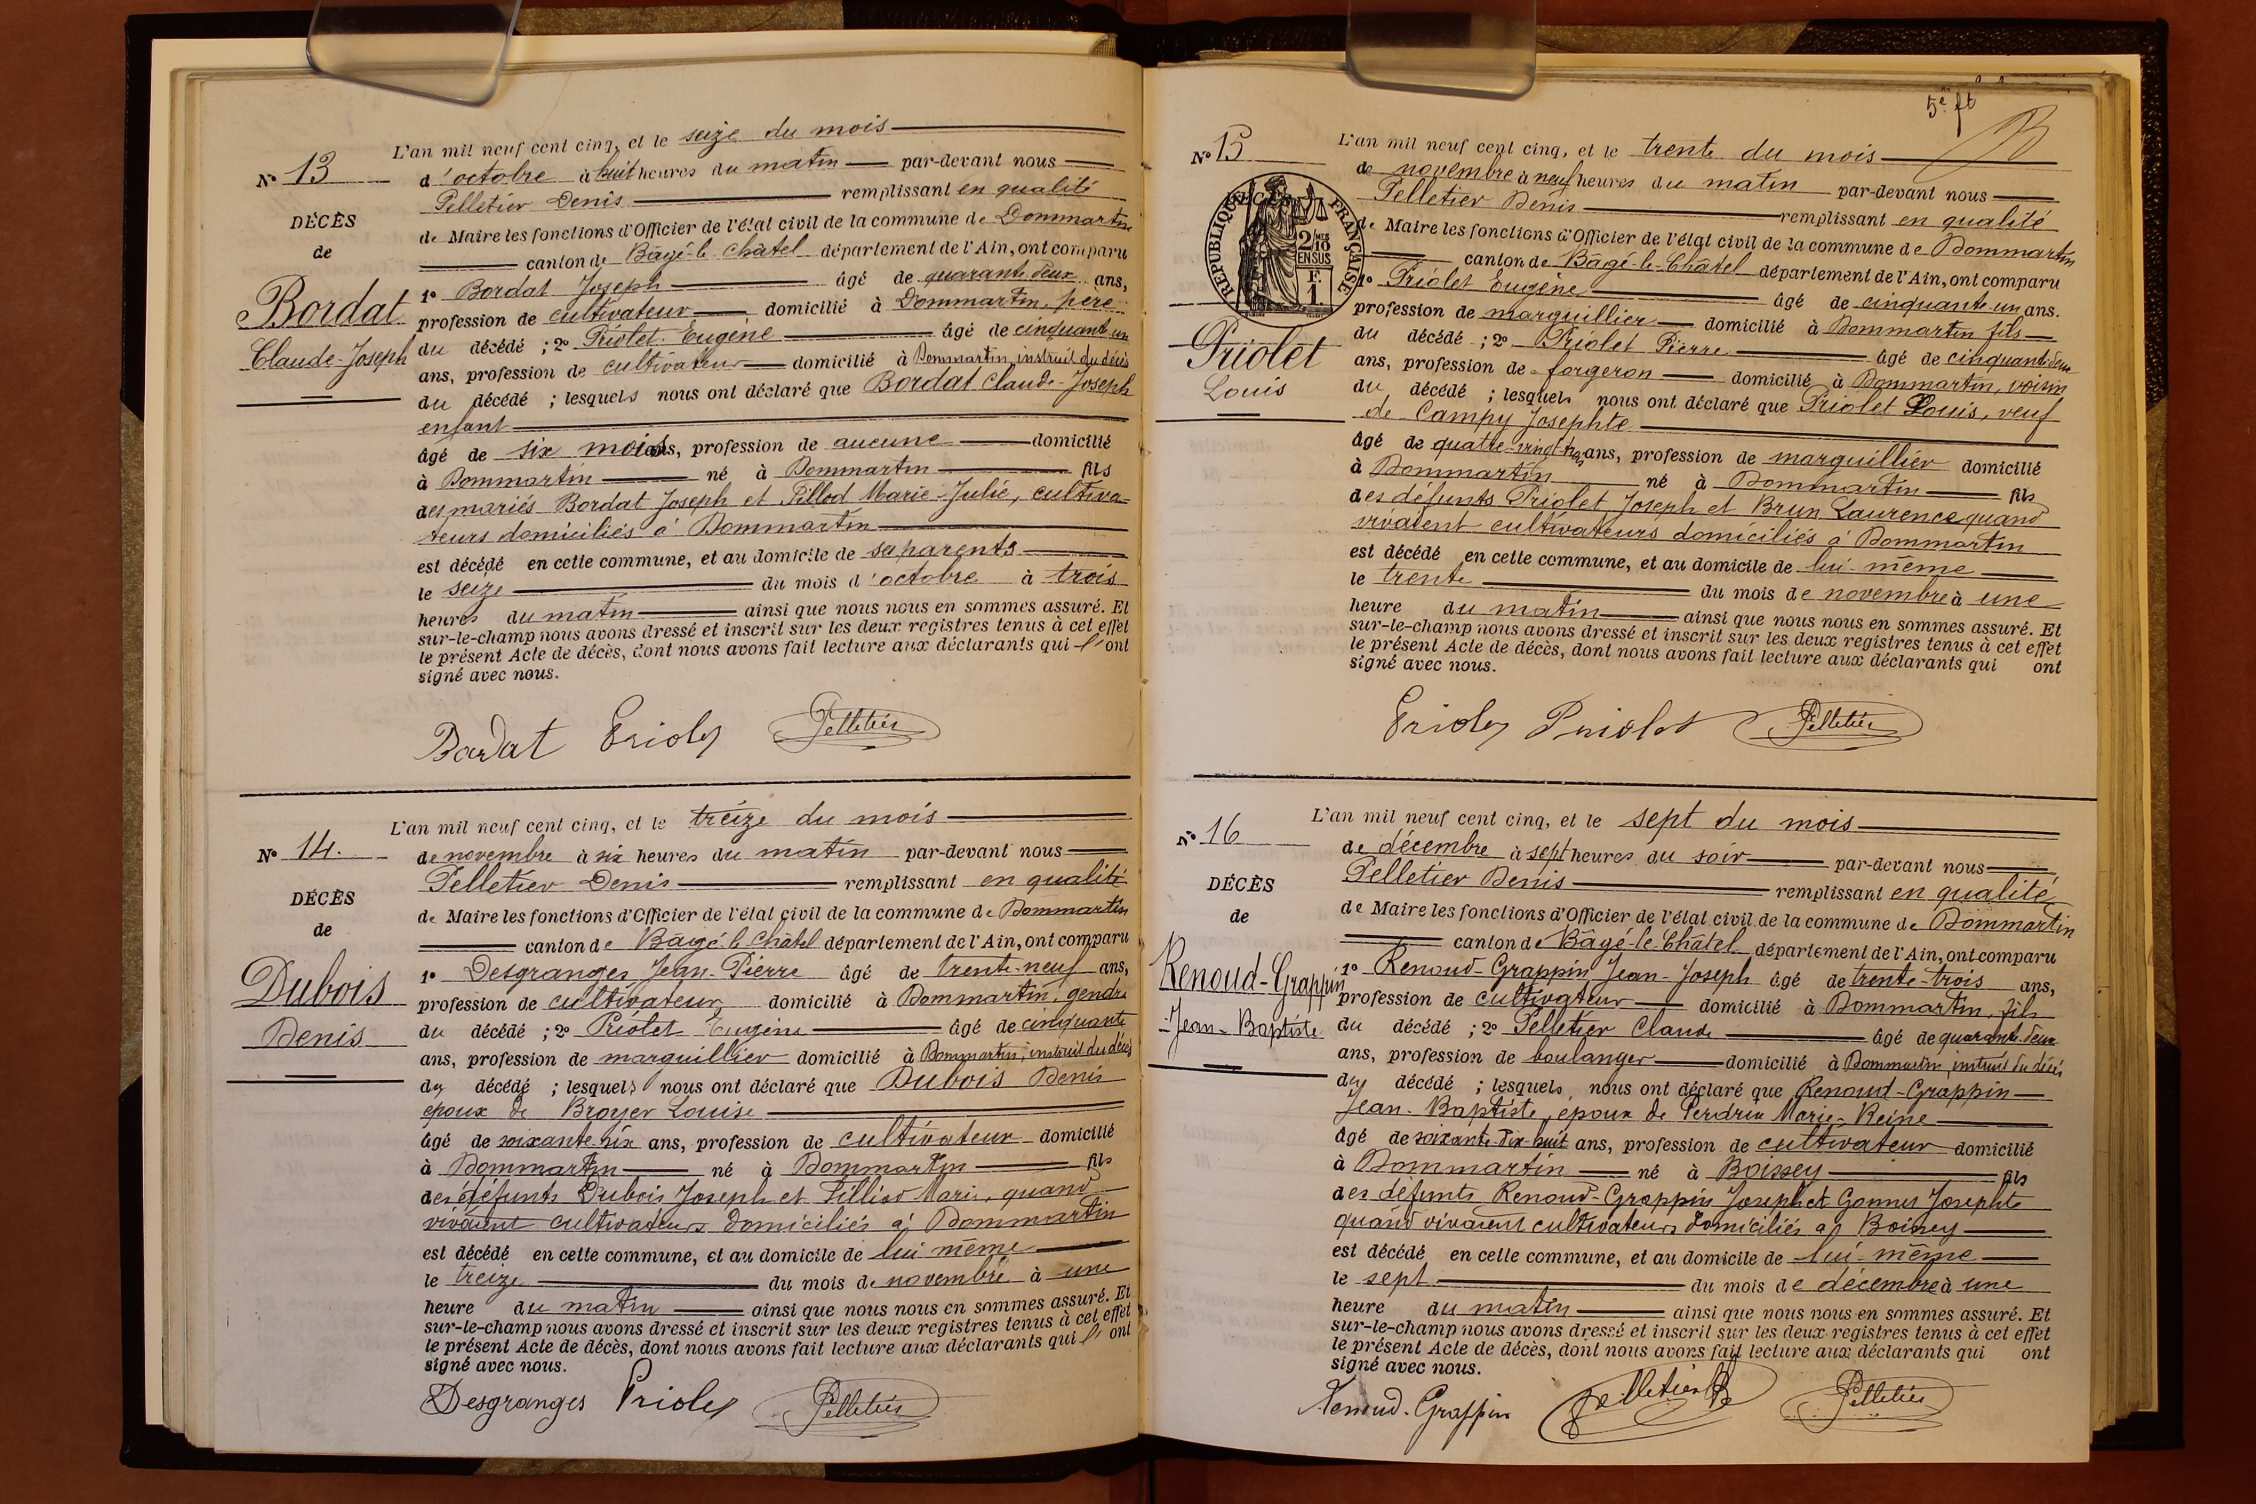 L'an mil neuf cent cinq, et le seize du mois
N° 13
d'octobre à huit heures du matin par-devant nous
Pelletier Denis remplissant en qualité
DÉCÈS
de Maire les fonctions d'Officier de l'état civil de la commune de Dommartin
de
canton de Bâgé-le-Châtel département de l'Ain, ont comparu
Bordat
1° Bordat Joseph âgé de quarante deux ans,
profession de cultivateur domicilié à Dommartin, père
Claude-Joseph
du décédé ; 2° Priolet Eugène âgé de cinquante un
ans, profession de cultivateur domicilié à Dommartin, instruit du décès
du décédé ; lesquels nous ont déclaré que Bordat Claude-Joseph
enfant
âgé de six mois ans, profession de aucune domicilié
à Dommartin né à Dommartin fils
des mariés Bordat Joseph et Pillod Marie-Julie, cultiva-
teurs domiciliés à Dommartin
est décédé en cette commune, et au domicile de ses parents
le seize du mois d'octobre à trois
heures du matin ainsi que nous nous en sommes assuré. Et
sur-le-champ nous avons dressé et inscrit sur les deux registres tenus à cet effet
le présent Acte de décès, dont nous avons fait lecture aux déclarants qui l'ont
signé avec nous.
Bordat Priolet Pelletier
L'an mil neuf cent cinq, et le treize du mois
N° 14.
de novembre à six heures du matin par-devant nous
Pelletier Denis remplissant en qualité
DÉCÈS
de Maire les fonctions d'Officier de l'état civil de la commune de Dommartin
de
canton de Bâgé-le-Châtel département de l'Ain, ont comparu
Dubois
1° Desgranges Jean-Pierre âgé de trente-neuf ans,
profession de cultivateur domicilié à Dommartin, gendre
Denis
du décédé ; 2° Priolet Eugène âgé de cinquante
ans, profession de marguillier domicilié à Dommartin, instruit du décès
du décédé ; lesquels nous ont déclaré que Dubois Denis
époux de Broyer Louise
âgé de soixante-six ans, profession de cultivateur domicilié
à Dommartin né à Dommartin fils
des défunts Dubois Joseph et Marie, quand
vivaient cultivateurs domiciliés à Dommartin
est décédé en cette commune, et au domicile de lui-même
le treize du mois de novembre à une
heure du matin ainsi que nous nous en sommes assuré. Et
sur-le-champ nous avons dressé et inscrit sur les deux registres tenus à cet effet
le présent Acte de décès, dont nous avons fait lecture aux déclarants qui l'ont
signé avec nous.
Desgranges Priolet Pelletier
5e ft
L'an mil neuf cent cinq, et le trente du mois
N° 15
de novembre à neuf heures du matin par-devant nous
Pelletier Denis remplissant en qualité
RÉPUBLIQUE FRANÇAISE
2/10 EN SUS
F. 1.
de Maire les fonctions d'Officier de l'état civil de la commune de Dommartin
canton de Bâgé-le-Châtel département de l'Ain, ont comparu
1° Priolet Eugène âgé de cinquante-un ans.
profession de marguillier domicilié à Dommartin fils
Priolet
du décédé ; 2° Priolet Pierre âgé de cinquante-deux
ans, profession de forgeron domicilié à Dommartin, voisin
Louis
du décédé ; lesquels nous ont déclaré que Priolet Louis, veuf
de Campy Josephte
âgé de quatre-vingt- ans, profession de marguillier domicilié
à Dommartin né à Dommartin fils
des défunts Priolet Joseph et Brun Laurence quand
vivaient cultivateurs domiciliés à Dommartin
est décédé en cette commune, et au domicile de lui-même
le trente du mois de novembre à une
heure du matin ainsi que nous nous en sommes assuré. Et
sur-le-champ nous avons dressé et inscrit sur les deux registres tenus à cet effet
le présent Acte de décès, dont nous avons fait lecture aux déclarants qui ont
signé avec nous.
Priolet Priolet Pelletier
L'an mil neuf cent cinq, et le sept du mois
N° 16
de décembre à sept heures du soir par-devant nous
Pelletier Denis remplissant en qualité
DÉCÈS
de Maire les fonctions d'Officier de l'état civil de la commune de Dommartin
de
canton de Bâgé-le-Châtel département de l'Ain, ont comparu
Renoud-Grappin
1° Renoud-Grappin Jean-Joseph âgé de trente-trois ans,
profession de cultivateur domicilié à Dommartin, fils
Jean-Baptiste
du décédé ; 2° Pelletier Claude âgé de quarante-deux
ans, profession de boulanger domicilié à Dommartin, instruit du décès
du décédé ; lesquels nous ont déclaré que Renoud-Grappin
Jean-Baptiste, époux de Perdrix Marie-Reine
âgé de soixante-dix-huit ans, profession de cultivateur domicilié
à Dommartin né à Boissey fils
des défunts Renoud-Grappin Joseph et Josephte
quand vivaient cultivateurs domiciliés à Boissey
est décédé en cette commune, et au domicile de lui-même
le sept du mois de décembre à une
heure du matin ainsi que nous nous en sommes assuré. Et
sur-le-champ nous avons dressé et inscrit sur les deux registres tenus à cet effet
le présent Acte de décès, dont nous avons fait lecture aux déclarants qui ont
signé avec nous.
Renoud-Grappin Pelletier Pelletier